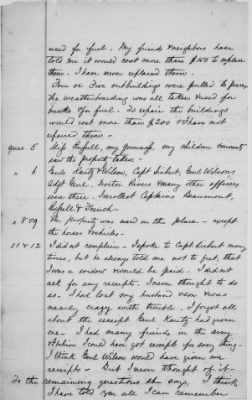 used for fuel. My friends & neighbors have
told me it would cost more than $150 to replace
them. I have never replaced them.
Four or Five outbuildings were pulled to pieces,
the weatherboarding was all taken & used for
bunks & for fuel. To repair the buildings
would cost more than $200 & I have not
repaired them
ques 5 Miss Russell, my, my children & servants
saw the property taken
" 6 Genls Kautz & Wilson, Capt Siebert, Genl Wilsons
Adjt Genl, Doctor & many other officers
were there. I recollect Captains Beaumont,
Russell & French
" 8 & 9 The property was used on the place - except
the horse & vehicles.
11 & 12 I did not complain - I spoke to Capt Siebert many
times, but he always told me not to fret, that
I was a widow & would be paid. I did not
ask for any receipts. I never thought to do
so. I had lost my husband & son & was
nearly crazy with trouble. I forgot all
about the receipt Genl Kautz had given
me. I had many friends in the army
& I know I could have got receipts for every thing.
I think Genl Wilson would have given me
receipts - But I never thought of it.
To the remaining questions she says, I think
I have told you all I can remember